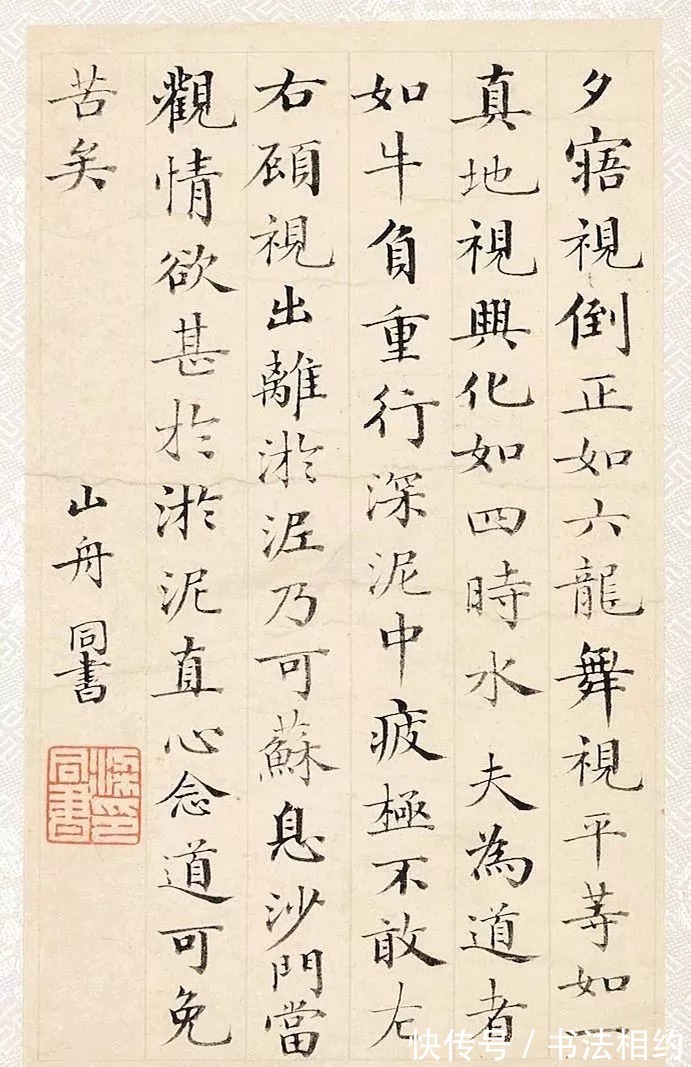 夕寤視倒正如六龍舞視平等如一
真地視興化如四時水 夫為道者
如牛負重行深泥中疲極不敢左
右顧視出離淤泥乃可蘇息沙門當
觀情欲甚於淤泥直心念道可免
苦矣
山舟 同書
梁同書印
快传号 / 书法相约